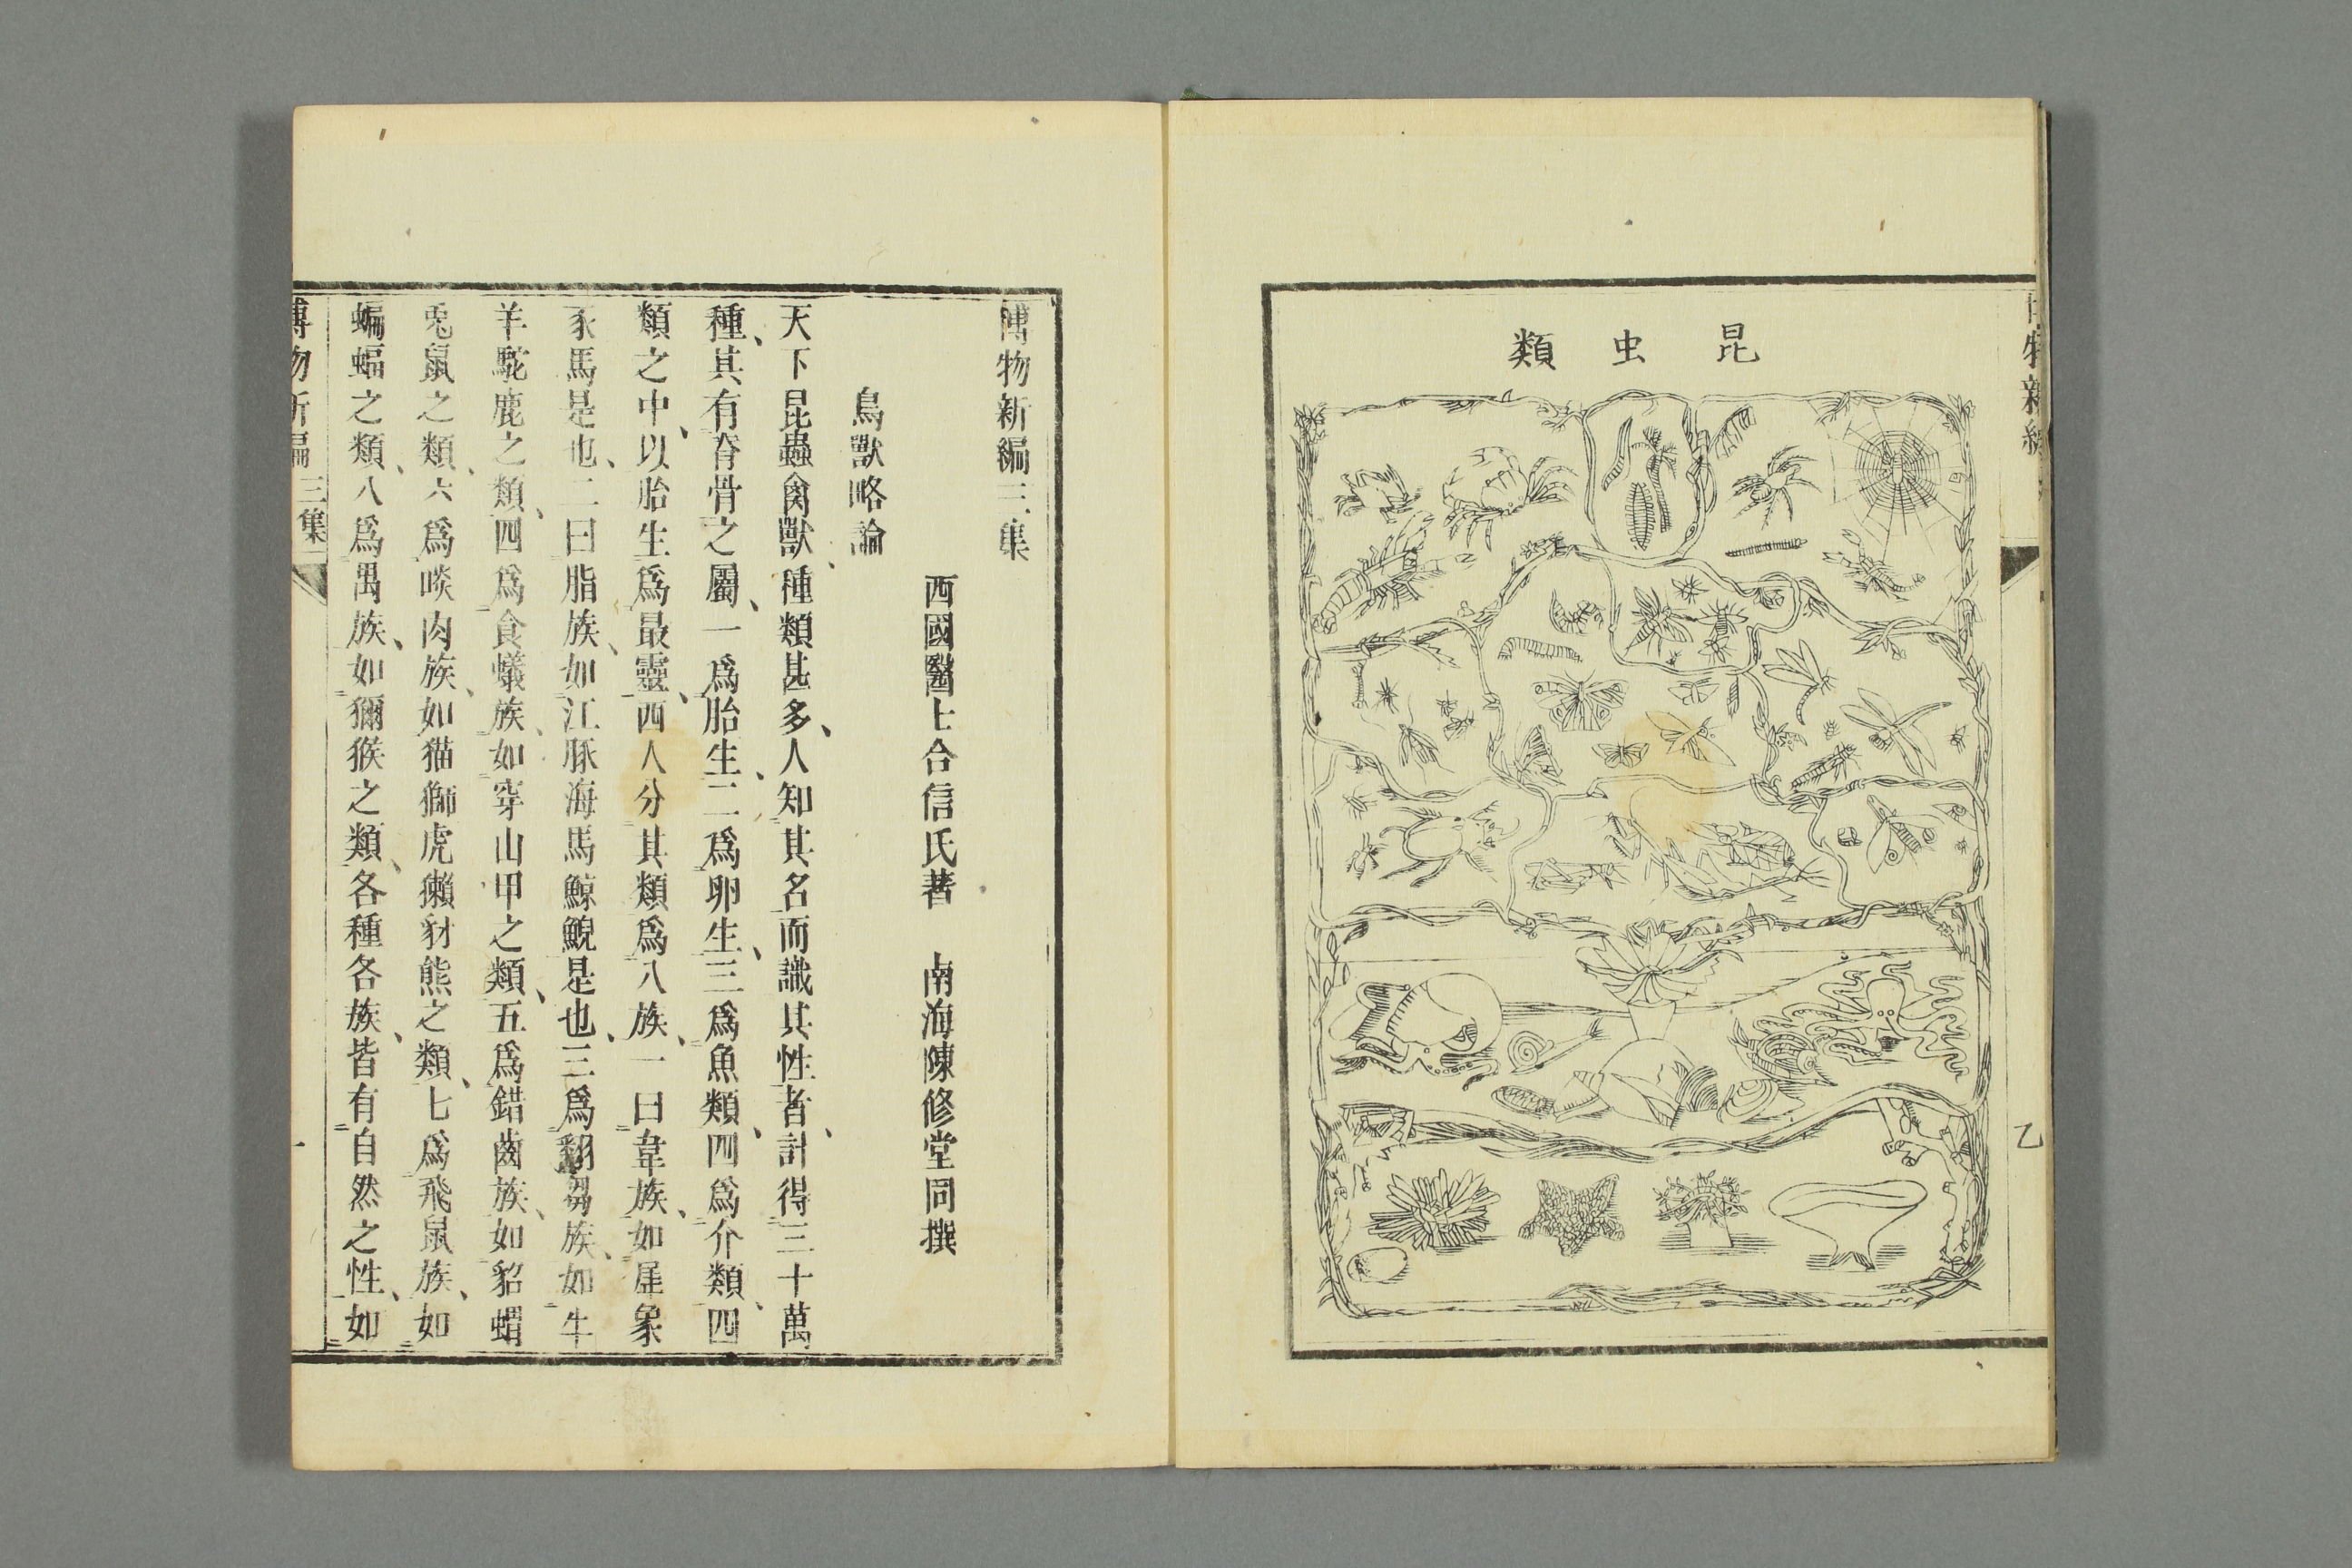 昆虫類
博物新編三集
西國醫士合信氏著　南海陳修堂同撰
鳥獸略論
天下昆蟲禽獸、種類甚多、人知其名而識其性者、計得三十萬
種、其有脊骨之屬、一爲胎生、二爲卵生、三爲魚類、四爲介類、四
類之中、以胎生爲最靈、西人分其類爲八族、一曰韋族、如犀象
豕馬是也、二曰脂族、如江豚海馬鯨鯢是也、三爲翻芻族、如牛
羊駝鹿之類、四爲食蟻族、如穿山甲之類、五爲錯齒族、如貂蝟
兎鼠之類、六爲啖肉族、如猫獅虎獺豺熊之類、七爲飛鼠族、如
蝙蝠之類、八爲禺族、如獼猴之類、各種各族、皆有自然之性、如
博物新編　三集　一